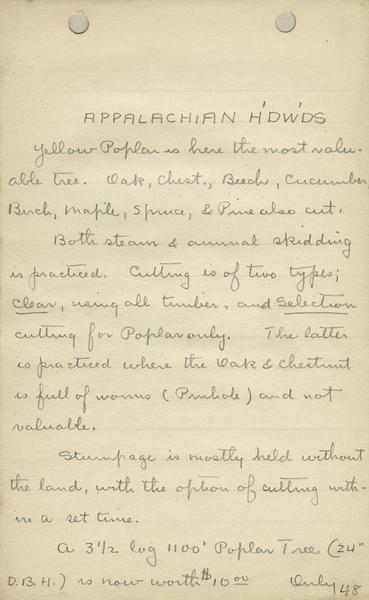 APPALACHIAN H'DW'DS
Yellow Poplar is here the most valu-
able tree. Oak, Chest., Beech, Cucumber,
Birch, Maple, Spruce, & Pine also cut.
Both steam & animal skidding
is practiced. Cutting is of two types;
Clear, using all timber, and Selection
cutting for Poplar only. The latter
is practiced where the Oak & Chestnut
is full of worms (Pinhole) and not
valuable.
Stumpage is mostly held without
the land, with the option of cutting with-
in a set time.
A 3 1/2 log 1100' Poplar Tree (24"
D.B.H.) is now worth $10 00 Only
48